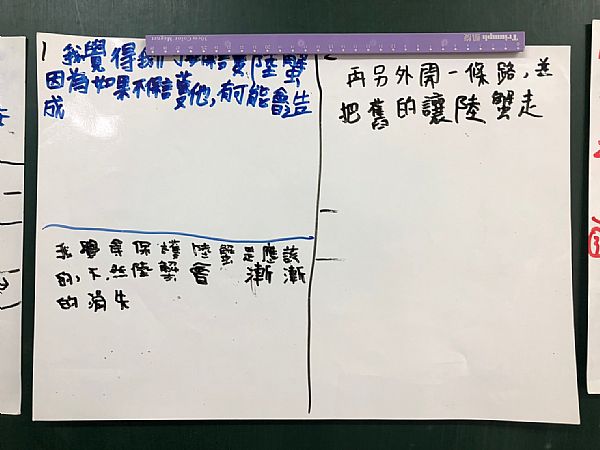 Triumph
1
我覺得我們 陸蟹,
因為如果不保護他,有可能會造
成
我覺得保護陸蟹是應該
的,不然陸蟹會 漸漸
的消失
再另外開一條路,並
把舊的讓陸蟹走